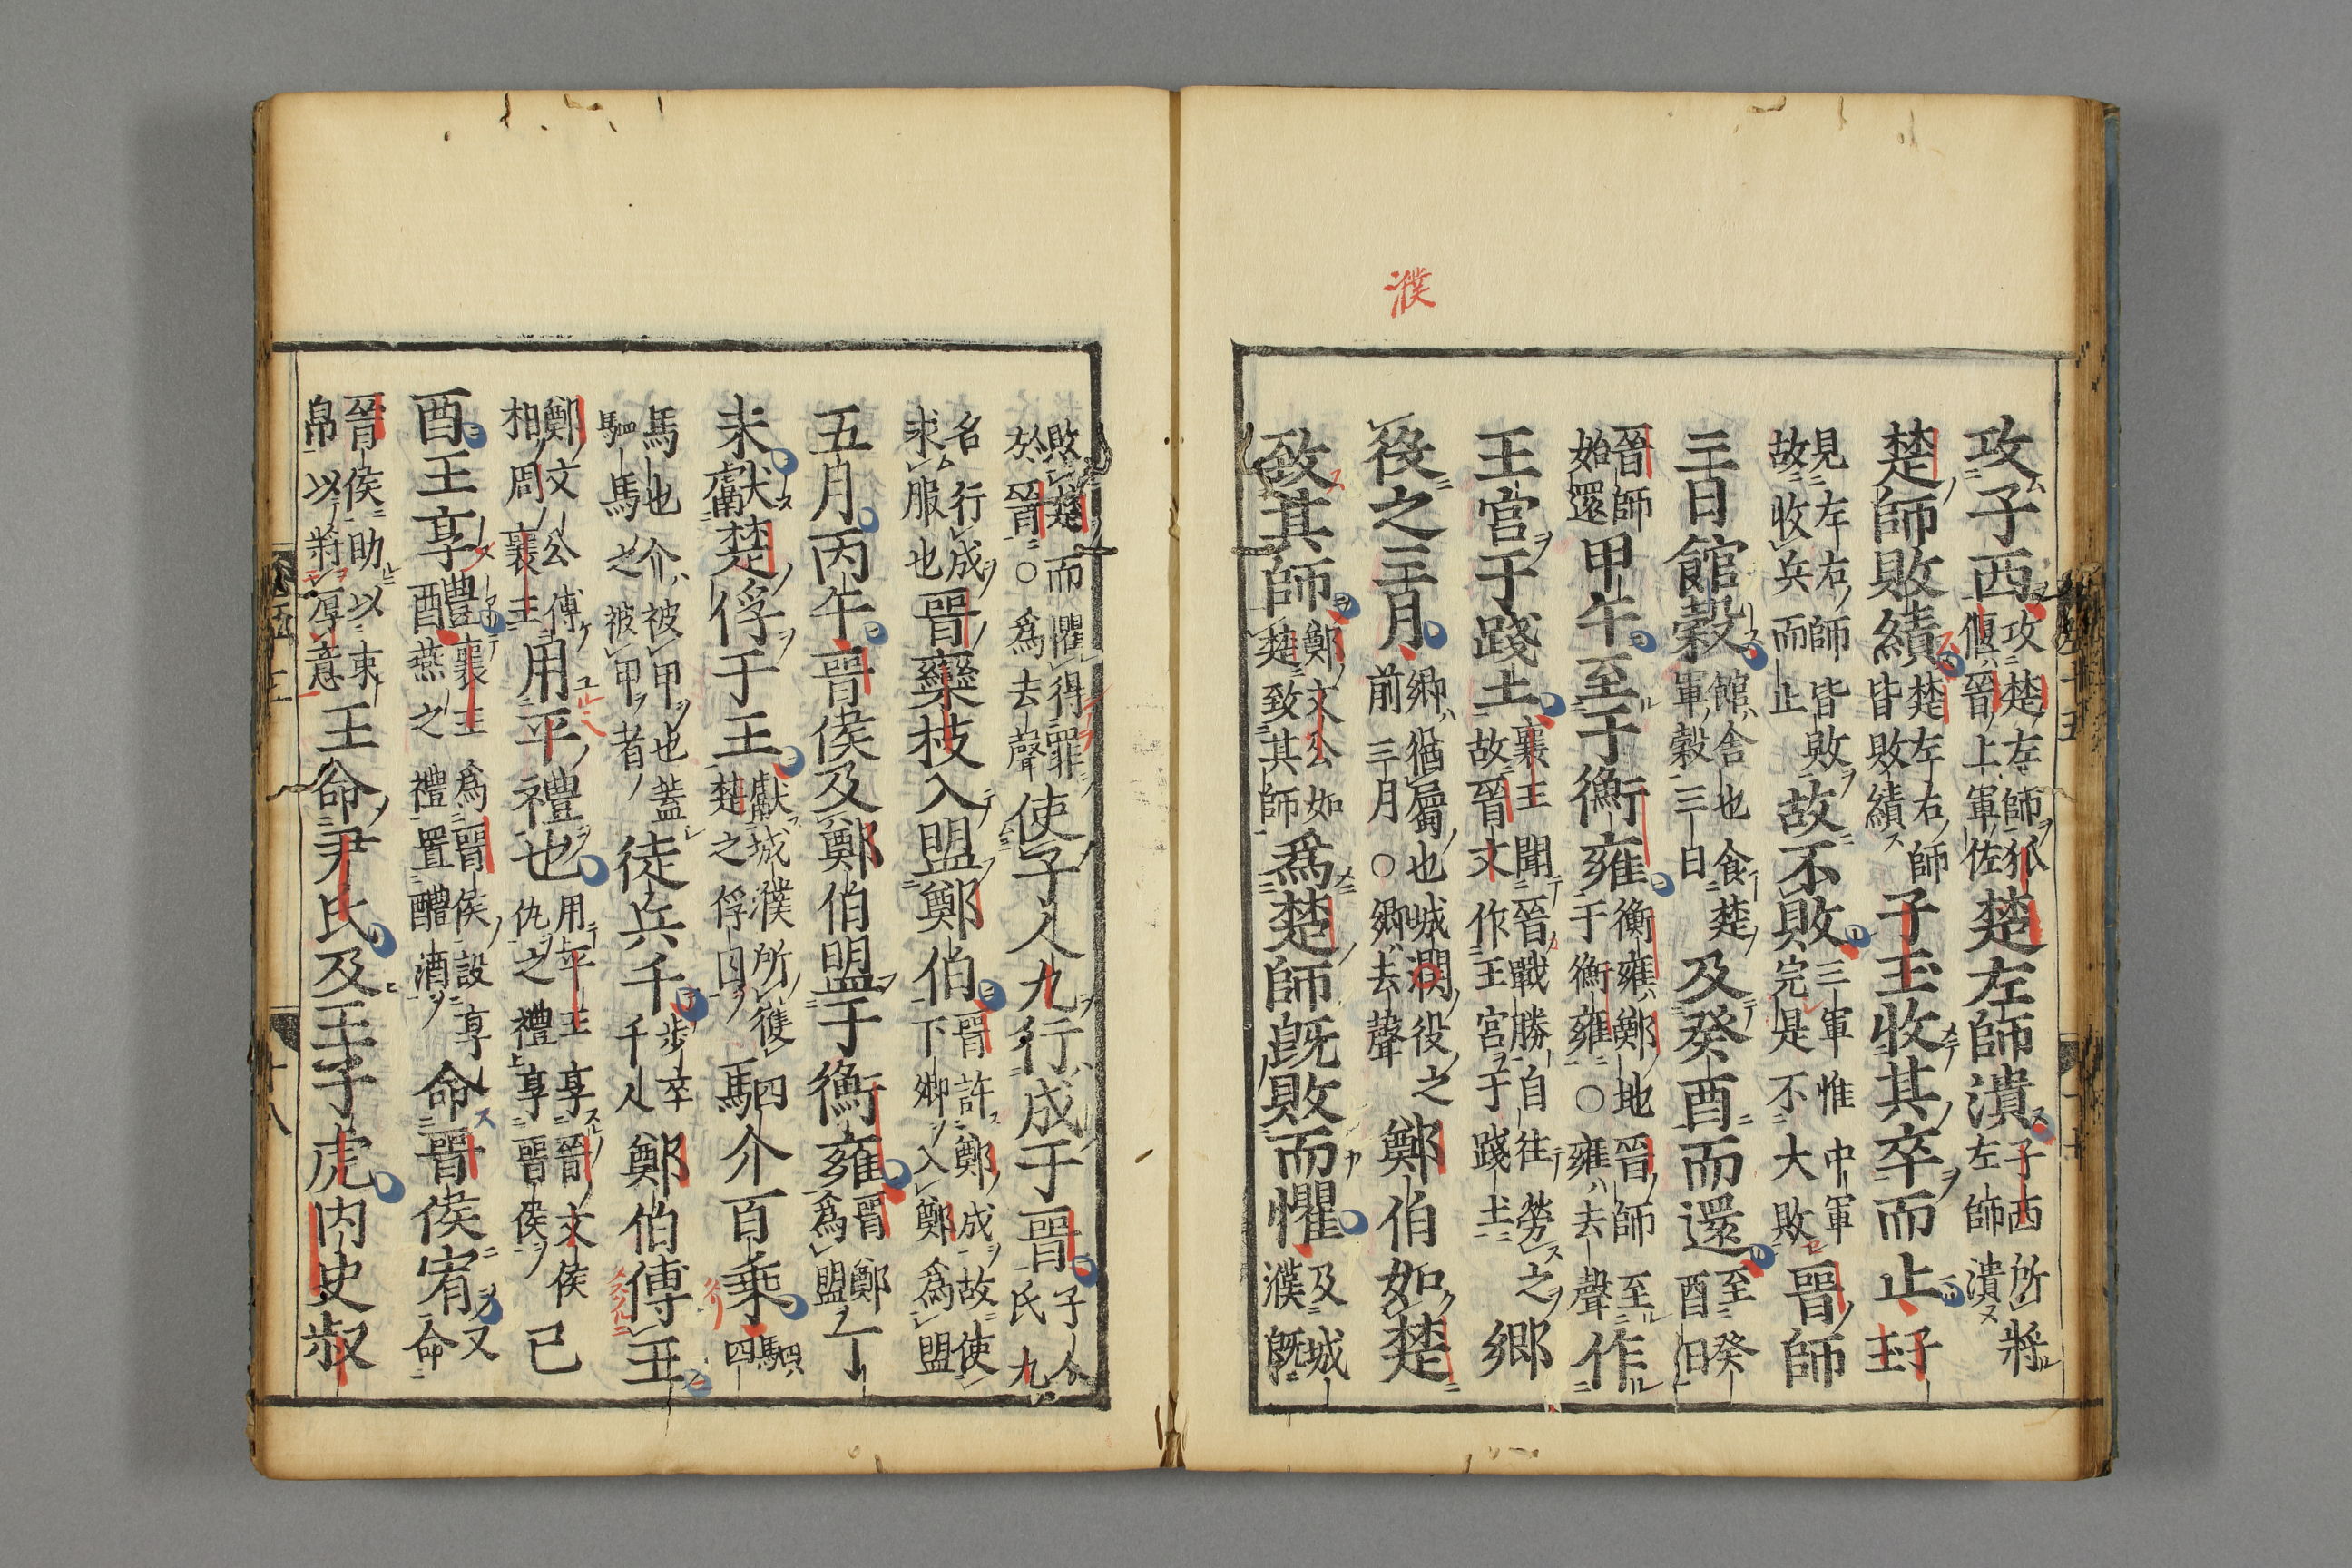 濮
攻子西攻楚左師狐偃晉上軍佐楚左師潰子西所將左師潰
楚師敗績楚左右師皆敗績子玉收其卒而止子玉
見左右師皆敗故收兵而止故不敗三軍惟中軍完是不大敗晉師
三日館穀館舍也食楚軍穀三日及癸酉而還至癸酉日
晉師始還甲午至于衡雍衡雍鄭地于衡雍○晉師至雍去聲作
王宮于踐土襄王聞晉戰勝自往勞之故晉文作王宮于踐土鄉
役之三月鄉猶屬也城濮役之前三月○鄉去聲鄭伯如楚
致其師鄭文公如楚致其師爲楚師既敗而懼及城濮既
敗楚而懼得罪於晉○爲去聲使子人九行成于晉子人氏九
名行成求服也晉欒枝入盟鄭伯晉許鄭成故使下卿入鄭爲盟
五月丙午晉侯及鄭伯盟于衡雍晉鄭爲盟丁
未獻楚俘于王獻城濮所獲楚之俘囚駟介百乘駟四
馬也介被甲也蓋駟馬之被甲者徒兵千步卒千人鄭伯傅王
鄭文公傅相周襄王用平禮也用平王享晉文侯仇之禮享晉侯己
酉王享醴襄王爲晉侯設享醴燕之禮置醴酒命晉侯宥又命
晉侯助以束帛以將厚意王命尹氏及王子虎內史叔